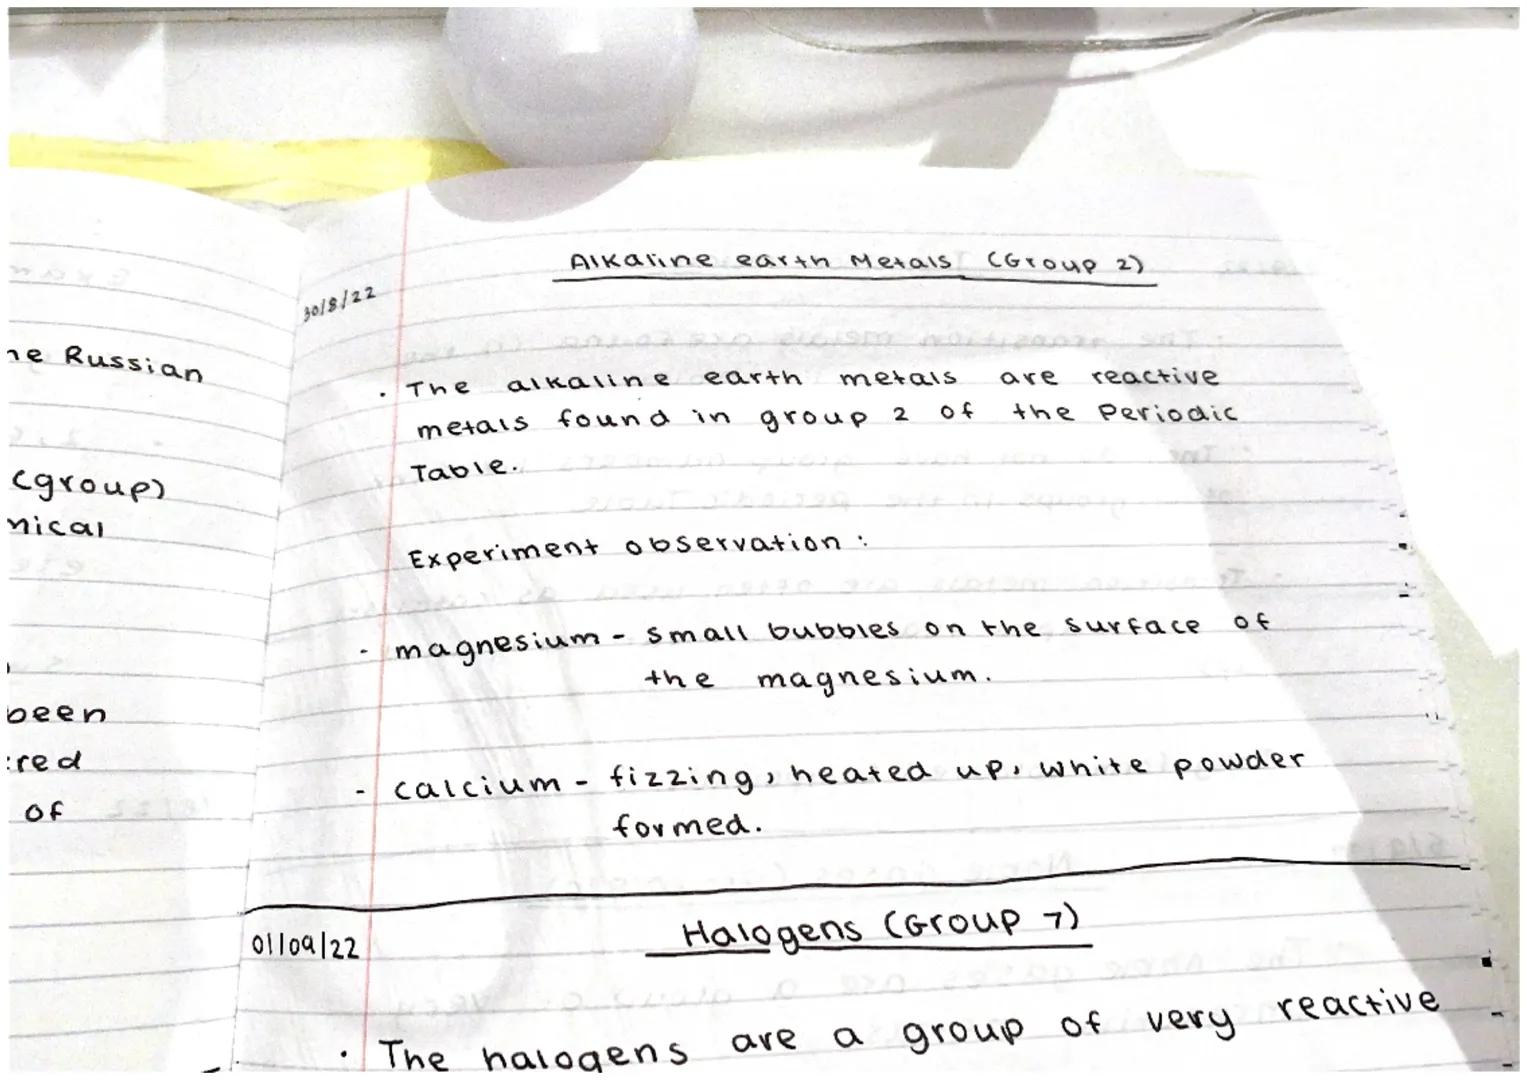 he Russian
(group)
mical
been
red
of
Alkaline earth Metals (Group 2)
30/8/22
· The alkaline earth metals are reactive
metals found in group 2 of the Periodic
Table.
Experiment observation :
- magnesium - small bubbles on the surface of
the magnesium.
- calcium - fizzing, heated up, white powder
formed.
01/09/22
Halogens (Group 7)
· The halogens are a group of very reactive